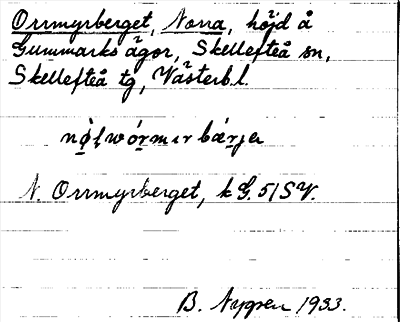 Orrmyrberget, Norra, höjd å
Gummarks ägor, Skellefteå sn,
Skellefteå tg, Västerb.l.
N. Orrmyrberget, k G. 51 SV.
B. Nygren 1933.